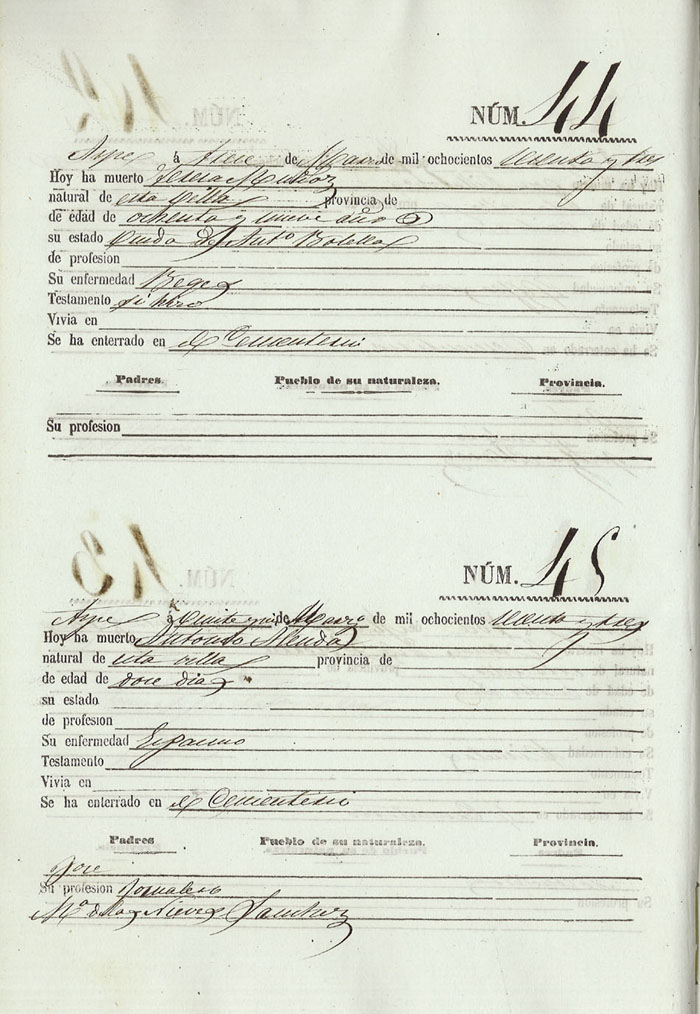 NÚM. 44
Aspe á trece de Marzo de mil ochocientos
Hoy ha muerto Muñoz
natural de esta villa provincia de
de edad de ochenta y nueve años
su estado Viuda de Antº Botella
de profesion
Su enfermedad Begez
Testamento si hizo
Vivia en
Se ha enterrado en el Cementerio
Padres. Pueblo de su naturaleza. Provincia.
Su profesion
NÚM. 45
Aspe á de Marzo de mil ochocientos
Hoy ha muerto Antonio
natural de esta villa provincia de
de edad de doce dias
su estado
de profesion
Su enfermedad Espasmo
Testamento
Vivia en
Se ha enterrado en el Cementerio
Padres Pueblo de su naturaleza. Provincia.
Jose
Su profesion Jornalero
Mª de las Nieves Sanchez